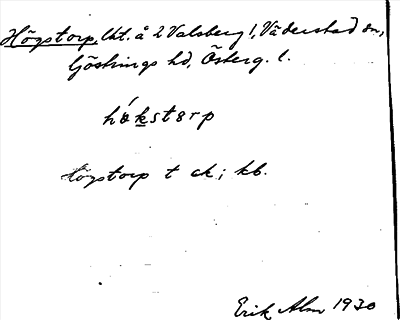 Högstorp, lht. å 2 Valsberg 1, Väderstad sn,
Göstrings hd, Österg. l.
hökstorp
Högstorp t ek; kb.
Erik Alm 1930